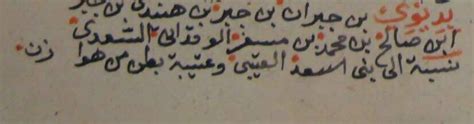 بديوي بن جبران بن جبر بن هنيدي بن جبر
ابن صالح بن محمد بن مسفر الوقداني السعدي
نسبة الى بني السعد العتيبي وعتيبة بطن من هوا زن